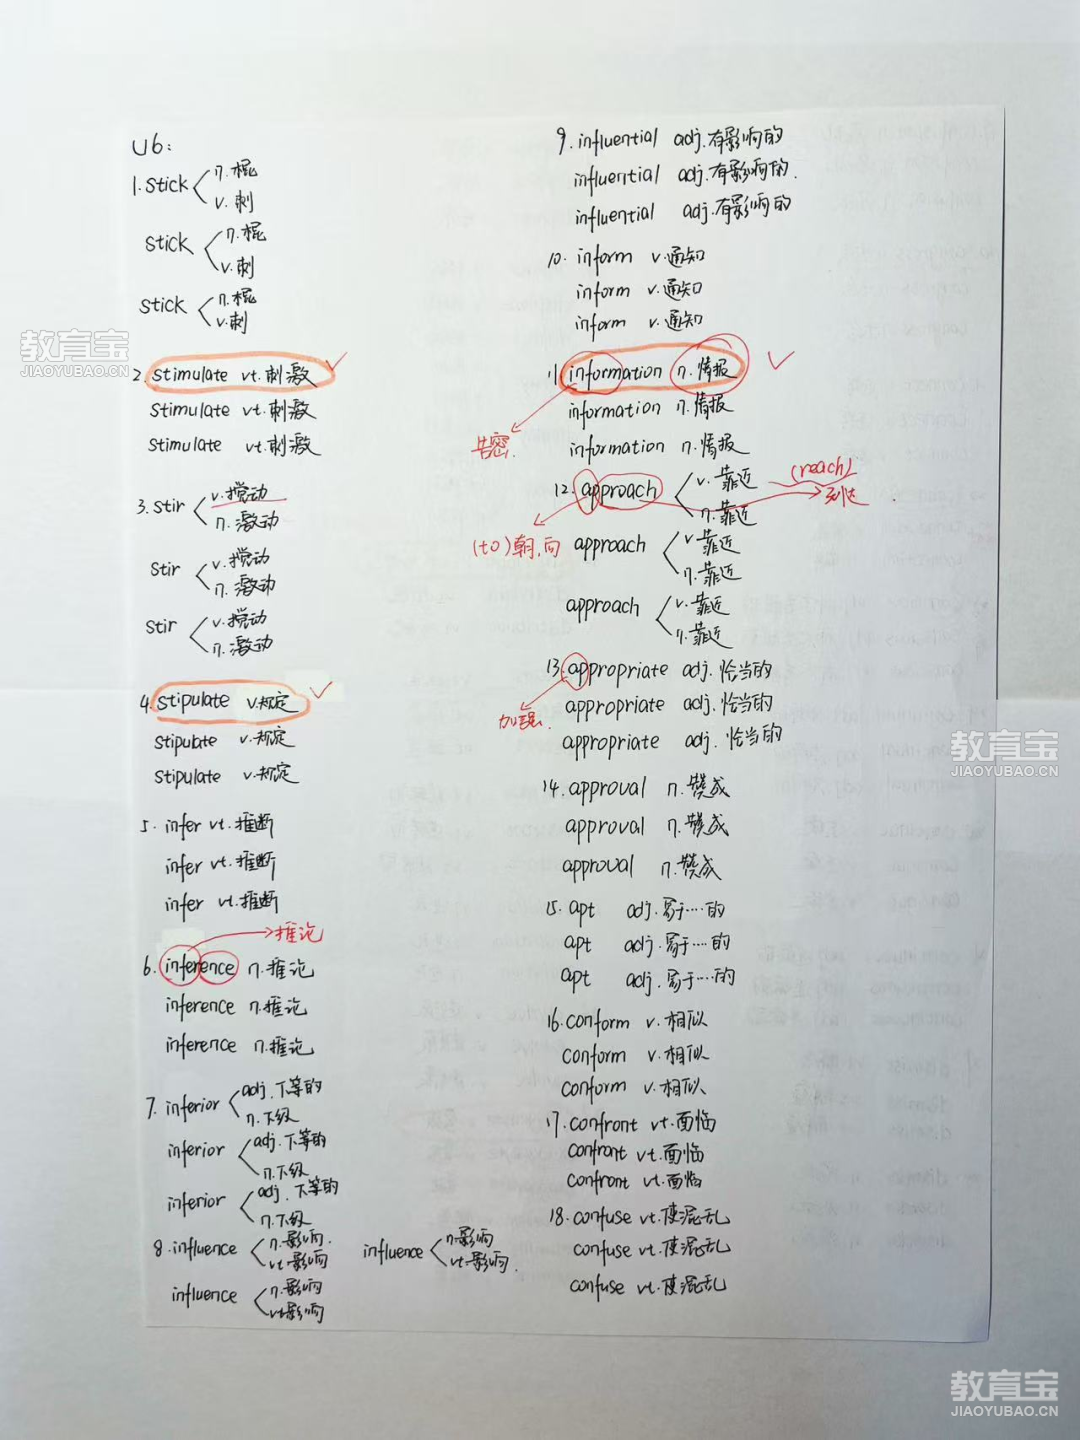 U6:
1. stick n. 棍
v. 刺
stick n. 棍
v. 刺
stick n. 棍
v. 刺
2. stimulate vt. 刺激
stimulate vt. 刺激
stimulate vt. 刺激
3. stir v. 搅动
n. 激动
stir v. 搅动
n. 激动
stir v. 搅动
n. 激动
4. stipulate v. 规定
stipulate v. 规定
stipulate v. 规定
5. infer vt. 推断
infer vt. 推断
infer vt. 推断
推论
6. inference n. 推论
inference n. 推论
inference n. 推论
7. inferior adj. 下等的
n. 下级
inferior adj. 下等的
n. 下级
inferior adj. 下等的
n. 下级
8. influence n. 影响.
vt. 影响
influence n. 影响
vt. 影响.
influence n. 影响
vt. 影响
9. influential adj. 有影响的
influential adj. 有影响的.
influential adj. 有影响的
10. inform v. 通知
inform v. 通知
inform v. 通知
11. information n. 情报
information n. 情报
告密.
information n. 情报
(reach)
12. approach v. 靠近
n. 靠近
到达
(to) 朝, 向
approach v. 靠近
n. 靠近
approach v. 靠近
n. 靠近
13. appropriate adj. 恰当的
appropriate adj. 恰当的
加强.
appropriate adj. 恰当的
14. approval n. 赞成
approval n. 赞成
approval n. 赞成
15. apt adj. 易于……的
apt adj. 易于……的
apt adj. 易于……的
16. conform v. 相似
conform v. 相似
conform v. 相似
17. confront vt. 面临
confront vt. 面临
confront vt. 面临
18. confuse vt. 使混乱
confuse vt. 使混乱
confuse vt. 使混乱
教育宝
JIAOYUBAO.CN
教育宝
JIAOYUBAO.CN
教育宝
JIAOYUBAO.CN